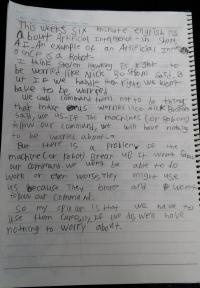 This weeks six minute english is
about Artificial intelligence - in short,
A.I. An example of an Artificial Inte
ence is a Robot.
I think Steven Hawking is right to
be worried like Nick Bostrom said, B
ut IF we handle that right we wont
have to be worried
we could command them not to be trying
that make us worries like Nick Bostrom
said, use us. If the machines (or Robots)
follow our command, we will have nothing
to be worried about.
But there is a problem, if the
machine (or robot) Break up it wont follow
our command we wont be able to do
work or even worse, they might use
us because they broke and wont
follow our command.
So my opinion is that we have to
use them carefully if we do, we'll have
nothing to worry about.